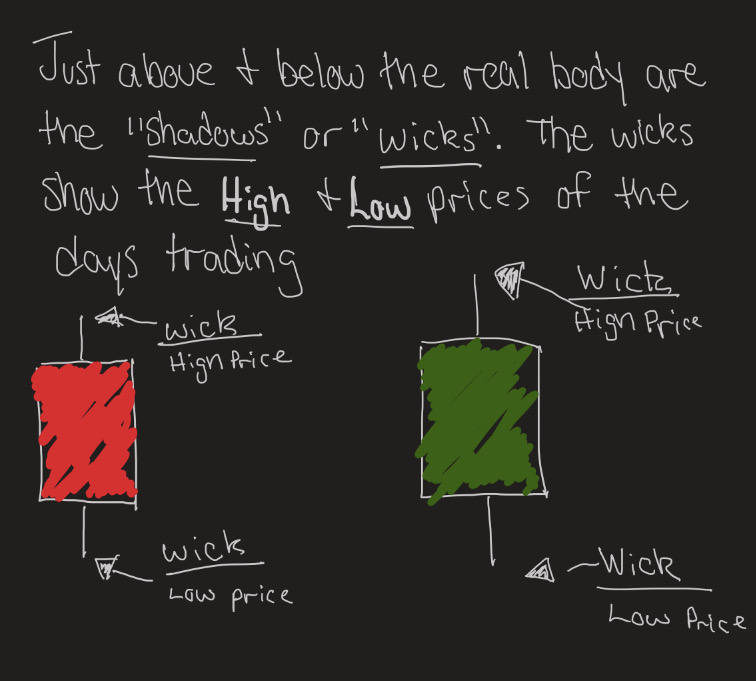 Just above & below the real body are
the "shadows" or "wicks". The wicks
show the High & Low prices of the
days trading
Wick
High Price
wick
High Price
wick
Low price
Wick
Low Price